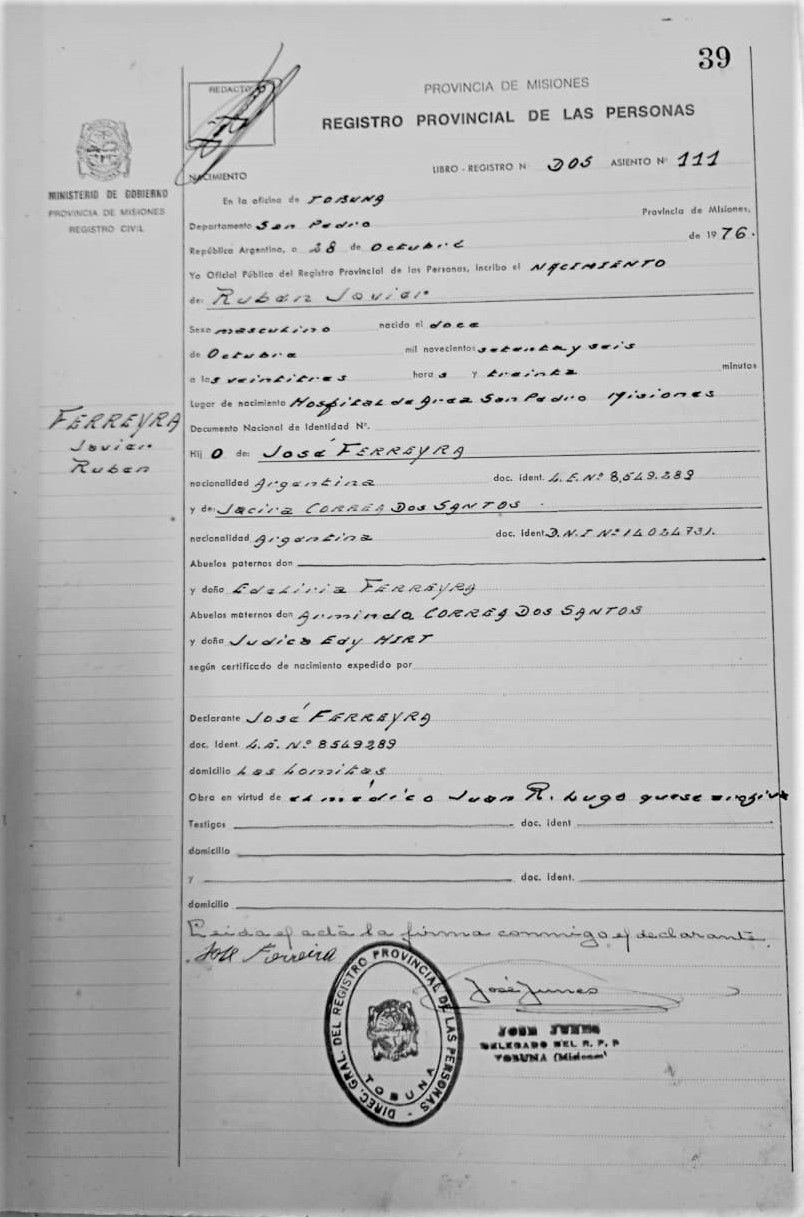 39
REDACTO
PROVINCIA DE MISIONES
REGISTRO PROVINCIAL DE LAS PERSONAS
MINISTERIO DE GOBIERNO
PROVINCIA DE MISIONES
REGISTRO CIVIL
NACIMIENTO
LIBRO - REGISTRO N DOS ASIENTO Nº 111
En la oficina de TOBUNA
Departamento San Pedro Provincia de Misiones,
República Argentina, a 28 de Octubre de 1976.
Yo Oficial Público del Registro Provincial de las Personas, incribo el NACIMIENTO
de: Ruben Javier
Sexo masculino nacido el doce
de Octubre mil novecientos setenta y seis
a las veintitres horas y treinta minutos
Lugar de nacimiento Hospital de Area San Pedro Misiones
FERREYRA
Javier
Ruben
Documento Nacional de Identidad Nº.
Hij O de: José FERREYRA
nacionalidad Argentina doc. ident. L.E. Nº 8,549.289
y de: Jacira CORREA DOS SANTOS
nacionalidad Argentina doc. ident. D.N.I Nº 14024731.
Abuelos paternos don
y doña FERREYRA
Abuelos maternos don Arminda CORREA DOS SANTOS
y doña Edy HIRT
según certificado de nacimiento expedido por
Declarante José FERREYRA
doc. Ident. L.E. Nº 8549289
domicilio Las Lomitas
Obra en virtud de el médico Juan R. Lugo
Testigos doc. ident
domicilio
y doc. ident.
domicilio
Leida el acta la firma conmigo el declarante.
José Ferreira
José Junes
JOSE JUNES
DELEGADO DEL R. P. P
TOBUNA (Misiones)
DIREC. GRAL. DEL REGISTRO PROVINCIAL DE LAS PERSONAS - TOBUNA